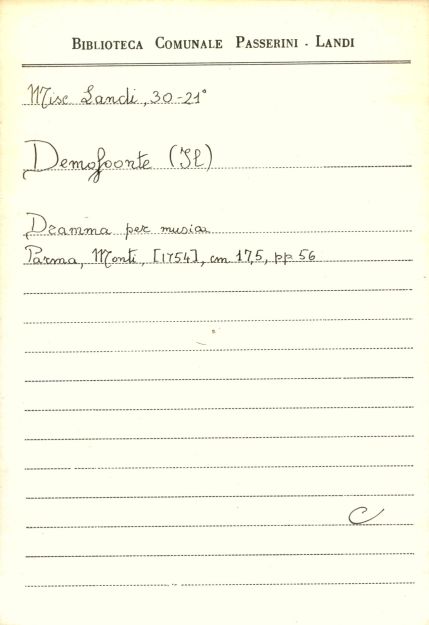 BIBLIOTECA COMUNALE PASSERINI - LANDI
Misc Landi, 30-21°
Demofoonte (Il)
Dramma per musica
Parma, Monti, [1754], cm 17,5, pp 56
C